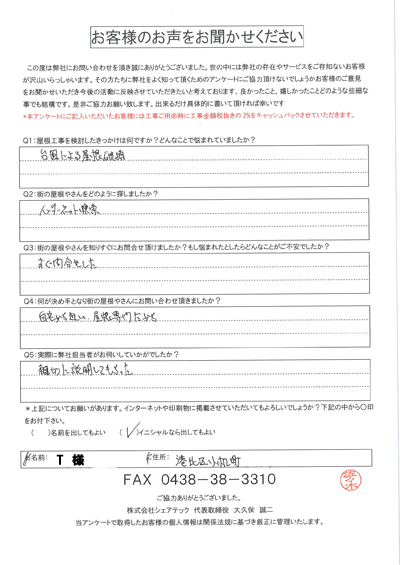 お客様のお声をお聞かせください
この度は弊社にお問い合わせを頂き誠にありがとうございました。世の中には弊社の存在やサービスをご存知ないお客様
が沢山いらっしゃいます。その方たちに弊社をよく知って頂くためのアンケートにご協力頂けないでしょうかお客様のご意見
をお聞かせいただき今後の活動に反映させていただきたいと考えております。良かったこと、嬉しかったことどのような些細な
事でも結構です。是非ご協力お願い致します。出来るだけ具体的に書いて頂ければ幸いです
*本アンケートにご記入いただいたお客様には工事ご用命時に工事金額税抜きの 2%をキャッシュバックさせていただきます。
Q1:屋根工事を検討したきっかけは何ですか?どんなことで悩まれていましたか?
台風による屋根破損
Q2:街の屋根やさんをどのように探しましたか?
インターネット検索
Q3:街の屋根やさんを知りすぐにお問合せ頂けましたか?もし悩まれたとしたらどんなことがご不安でしたか?
すぐ問合せした
Q4:何が決め手となり街の屋根やさんにお問い合わせ頂きましたか?
自宅から近い、屋根専門だから
Q5:実際に弊社担当者がお伺いしていかがでしたか?
親切に説明してもらった
*上記についてお願いがあります。インターネットや印刷物に掲載させていただいてもよろしいでしょうか?下記の中から〇印
をお付下さい。
( )名前を出してもよい (✓)イニシャルなら出してもよい
お名前: T 様 ご住所: 港北区小机町
FAX 0438-38-3310
佐々木
ご協力ありがとうございました。
株式会社シェアテック 代表取締役 大久保 誠二
当アンケートで取得したお客様の個人情報は関係法規に基づき厳正に管理いたします。